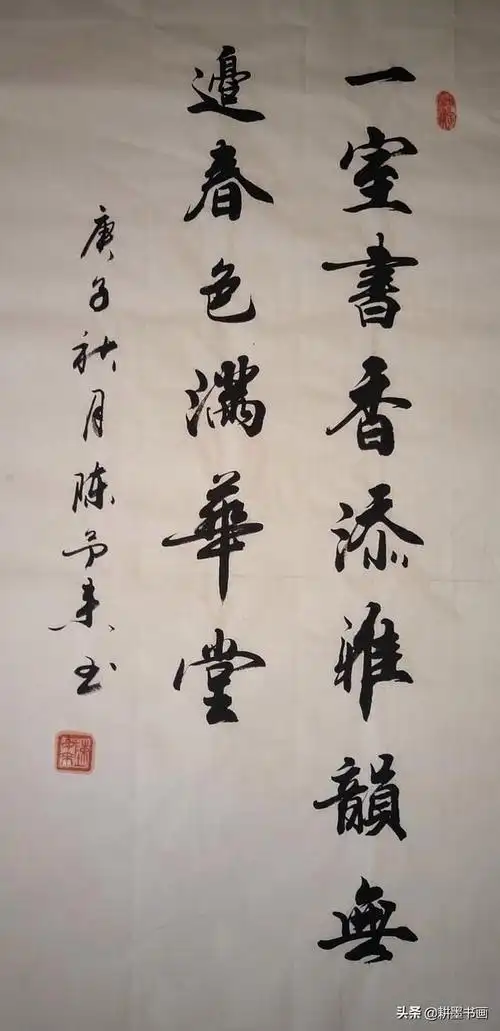 一室書香添雅韻無
邊春色滿華堂
庚子秋月陈
头条 @耕墨书画